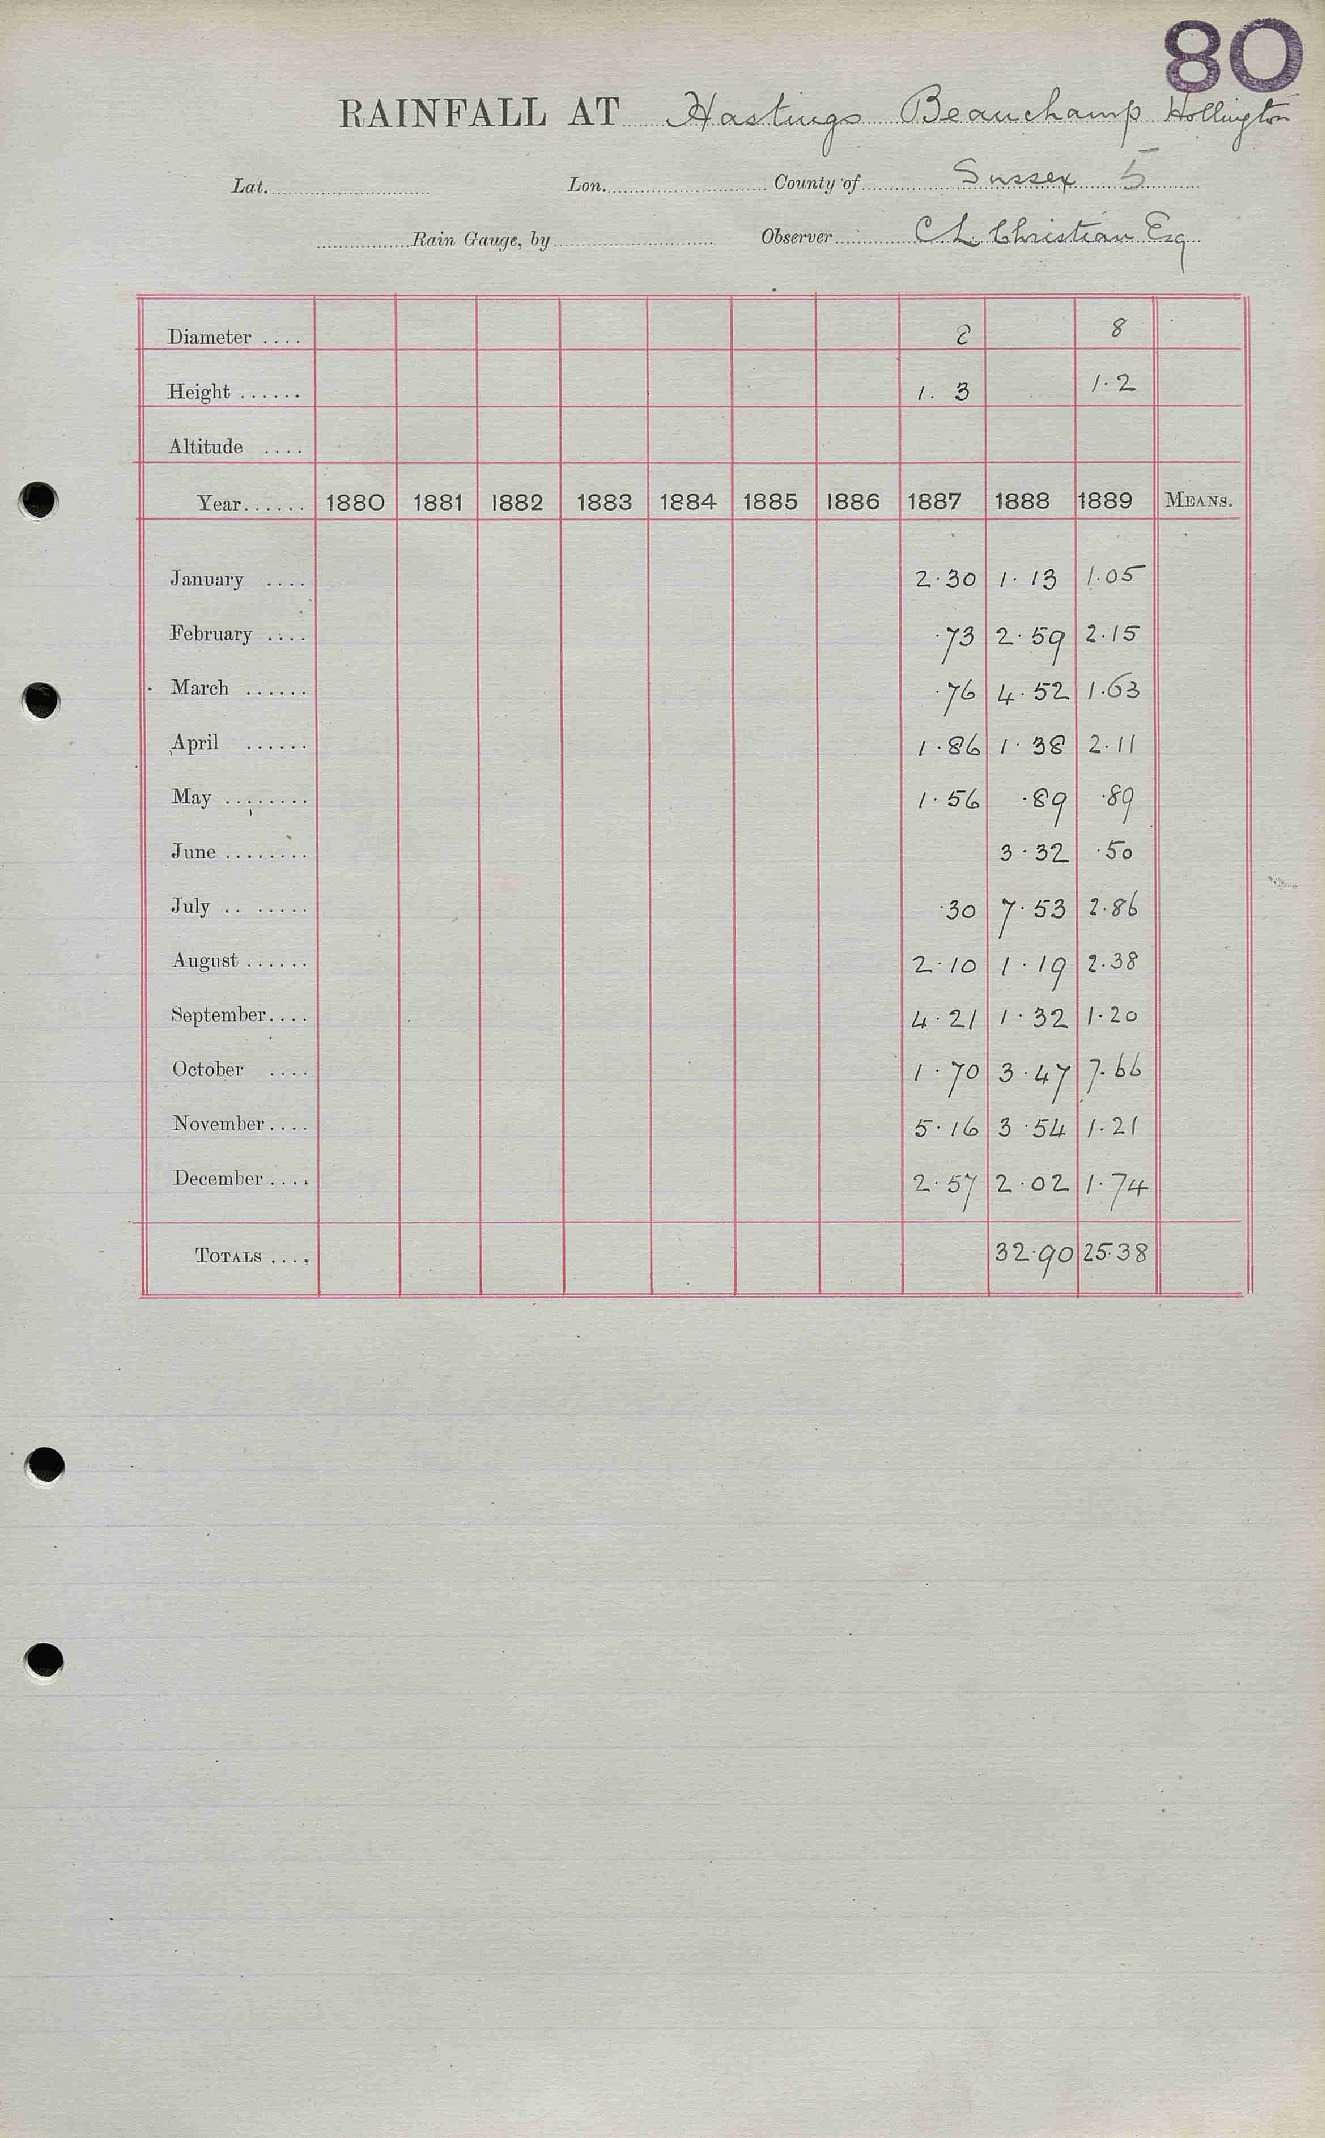 80
RAINFALL AT Hastings Beauchamp Hollington
Lat. Lon. County of Sussex 5
Rain Gauge, by Observer C L Christian Esq
Diameter .... 8 8
Height ...... 1. 3 1.2
Altitude ....
Year...... 1880 1881 1882 1883 1884 1885 1886 1887 1888 1889 MEANS.
January .... 2.30 1.13 1.05
February .... .73 2.59 2.15
March ...... .76 4.52 1.63
April ...... 1.86 1.38 2.11
May ........ 1.56 .89 .89
June ........ 3.32 .50
July .. ..... .30 7.53 2.86
August ...... 2.10 1.19 2.38
September.... 4.21 1.32 1.20
October .... 1.70 3.47 7.66
November.... 5.16 3.54 1.21
December.... 2.57 2.02 1.74
TOTALS .... 32.90 25.38